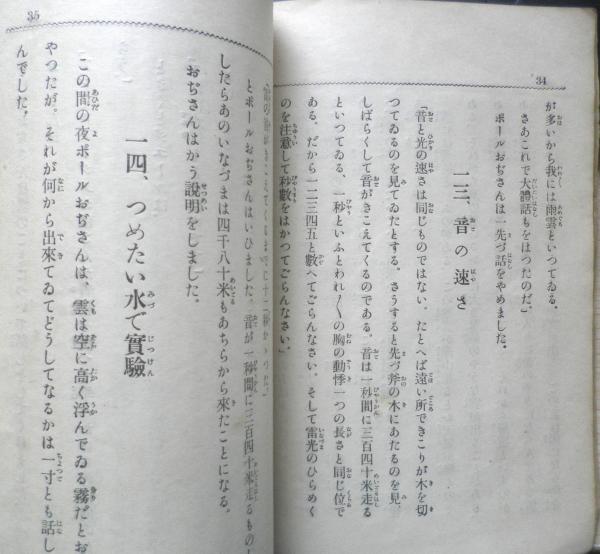 34
が多いから我々には雨雲といつてゐる。
さあこれで大體話もをはつたのだ」
ポールおぢさんは一先づ話をやめました。
一三、音の速さ
「音と光の速さは同じものではない。たとへば遠い所できこりが木を切
つてゐるのを見てゐたとする。さうすると先づ斧の木にあたるのを見、
しばらくして音がきこえてくるのである。音は一秒間に三百四十米走る
といつてゐる。一秒といふとわれ〳〵の胸の動悸一つの長さと同じ位で
ある。だから一二三四五と數へてごらんなさい。そして雷光のひらめく
のを注意して秒數をはかつてごらんなさい」
35
とポールおぢさんはいひました。音が一秒間に三百四十米走るものと
したらあのいなづまは四千八十米もあちらから來たことになる。
おぢさんはかう說明をしました。
一四、つめたい水で實驗
この間の夜ポールおぢさんは、雲は空に高く浮んでゐる霧だとお
やつたが。それが何から出來てゐてどうしてなるかは一寸とも話し
んでした。